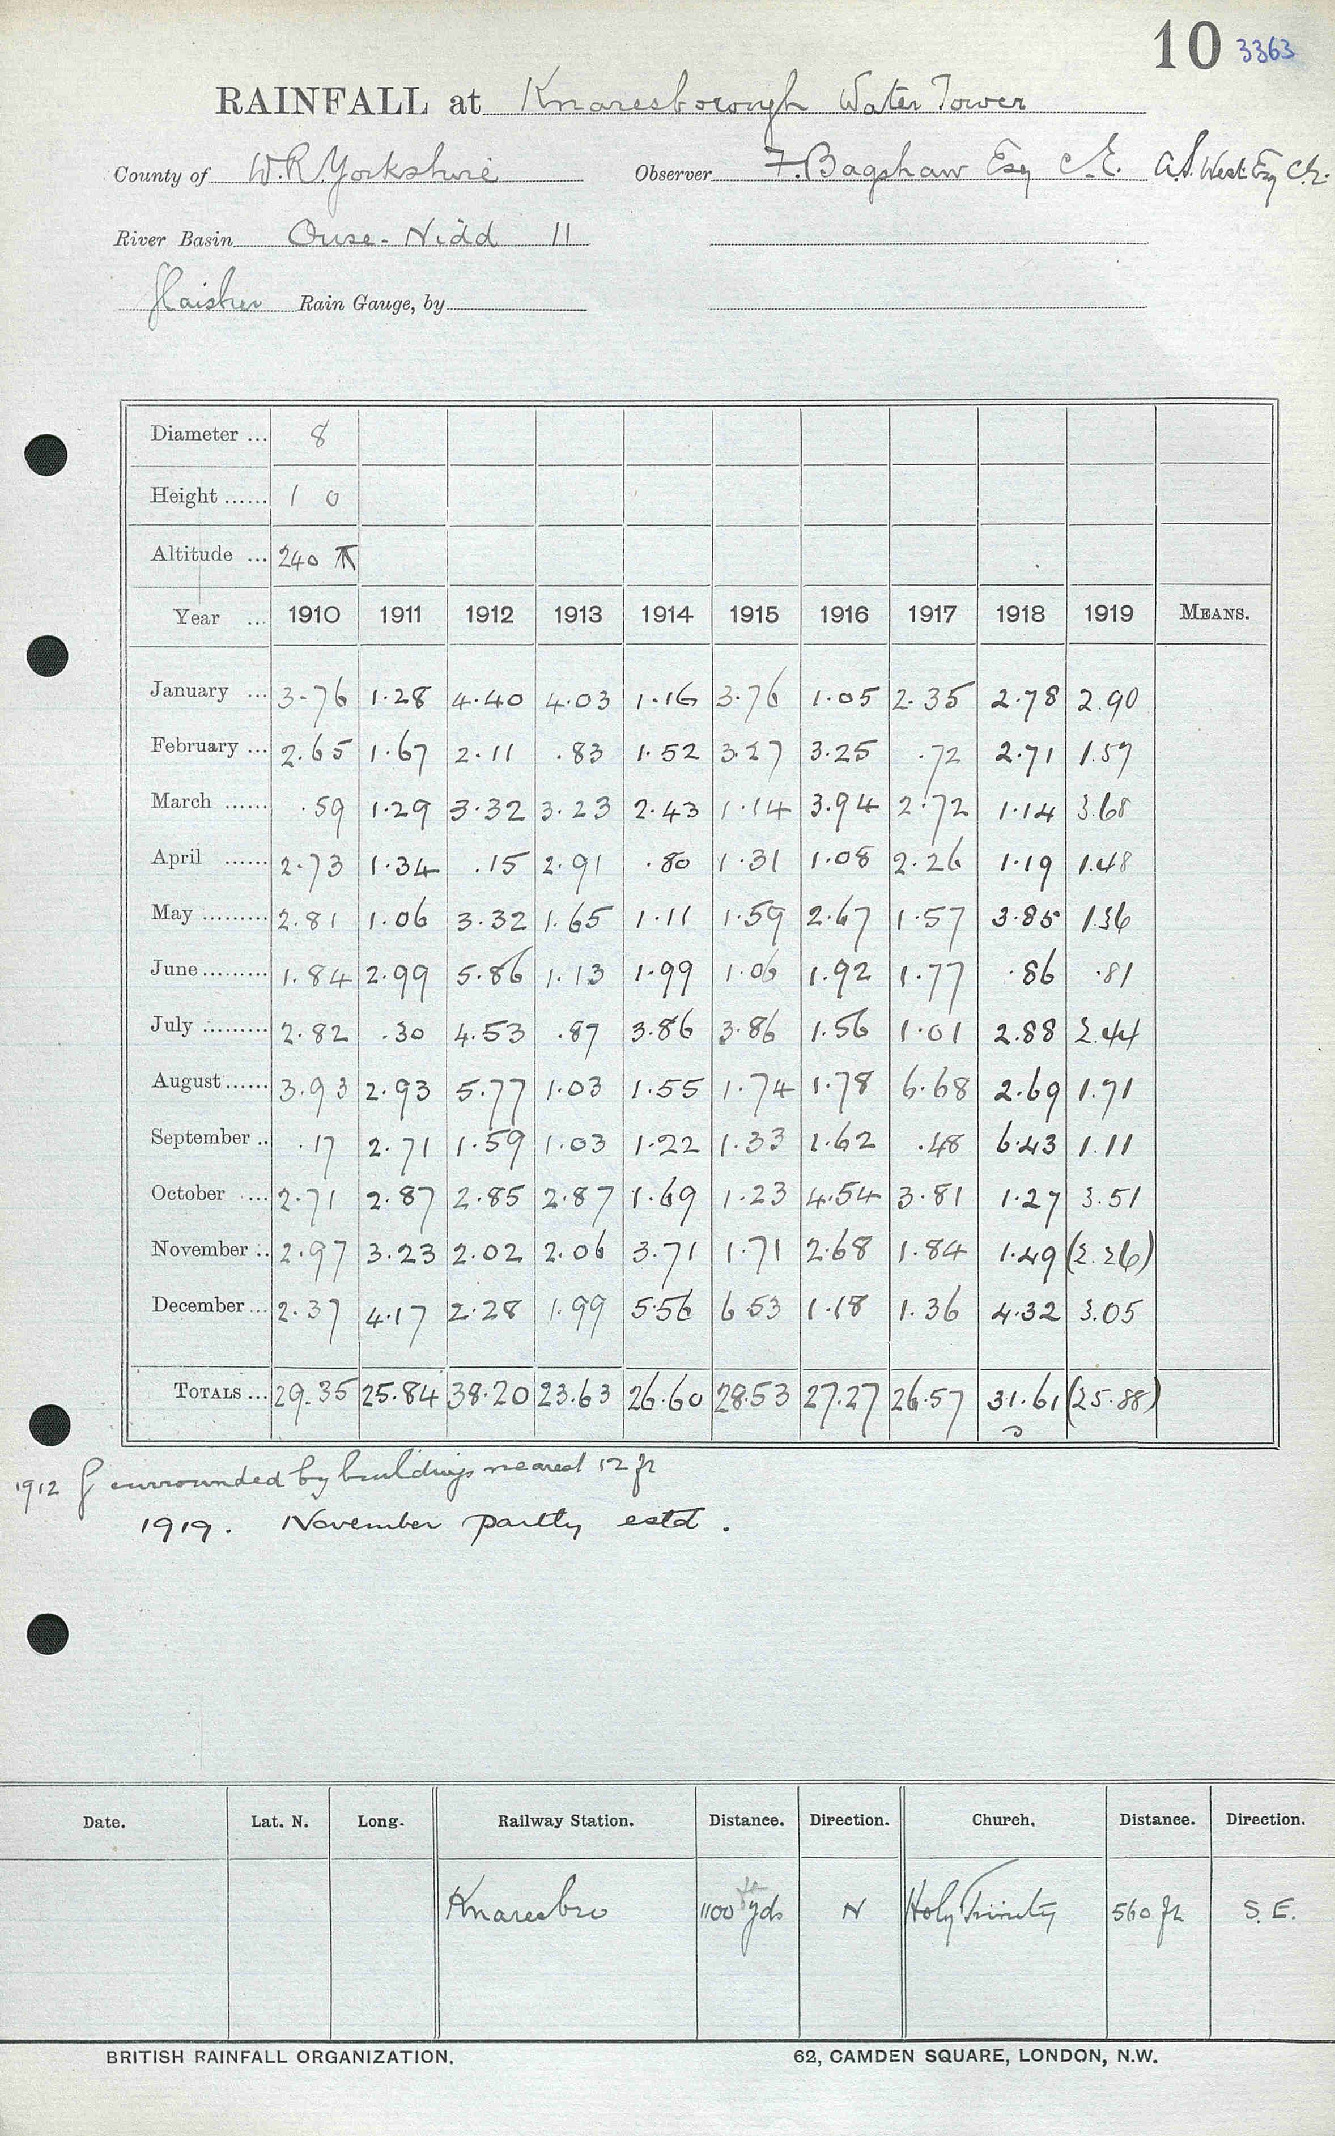 10 3363
RAINFALL at Knaresborough Water Tower
County of W.R. Yorkshire Observer F. Bagshaw Esq C.E. A.S. West Esq C.E.
River Basin Ouse - Nidd 11
Glaisher Rain Gauge, by
Diameter ... 8
Height ...... 1 0
Altitude ... 240
Year ... 1910 1911 1912 1913 1914 1915 1916 1917 1918 1919 MEANS.
January ... 3.76 1.28 4.40 4.03 1.16 3.76 1.05 2.35 2.78 2.90
February ... 2.65 1.67 2.11 .83 1.52 3.27 3.25 .72 2.71 1.57
March ...... .59 1.29 3.32 3.23 2.43 1.14 3.94 2.72 1.14 3.68
April ...... 2.73 1.34 .15 2.91 .80 1.31 1.08 2.26 1.19 1.48
May ......... 2.81 1.06 3.32 1.65 1.11 1.59 2.67 1.57 3.85 1.36
June ......... 1.84 2.99 5.86 1.13 1.99 1.06 1.92 1.77 .86 .81
July ......... 2.82 .30 4.53 .87 3.86 3.86 1.56 1.01 2.88 2.44
August ...... 3.93 2.93 5.77 1.03 1.55 1.74 1.78 6.68 2.69 1.71
September .. .17 2.71 1.59 1.03 1.22 1.33 1.62 .48 6.43 1.11
October .... 2.71 2.87 2.85 2.87 1.69 1.23 4.54 3.81 1.27 3.51
November .. 2.97 3.23 2.02 2.06 3.71 1.71 2.68 1.84 1.49 (2.26)
December ... 2.37 4.17 2.28 1.99 5.56 6.53 1.18 1.36 4.32 3.05
TOTALS ... 29.35 25.84 38.20 23.63 26.60 28.53 27.27 26.57 31.61 (25.88)
1912 G surrounded by buildings nearest 12 ft
1919. November partly estd.
Date. Lat. N. Long. Railway Station. Distance. Direction. Church. Distance. Direction.
Knaresbro 1100 yds N Holy Trinity 560 ft S.E.
BRITISH RAINFALL ORGANIZATION. 62, CAMDEN SQUARE, LONDON, N.W.